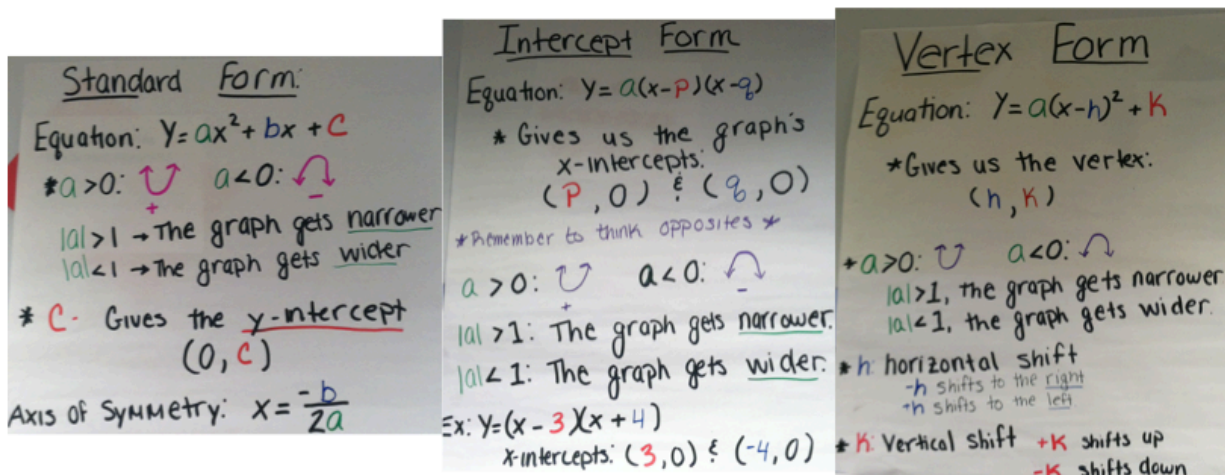 Standard Form:
Equation: Y=ax²+bx+c
*a>0: a<0:
+ -
|a|>1 → The graph gets narrower
|a|<1 → The graph gets wider
* C- Gives the y-intercept
(0, C)
Axis of Symmetry: x = -b/2a
Intercept Form
Equation: Y= a(x-p)(x-q)
* Gives us the graph's
x-intercepts:
(P, 0) & (q, 0)
*Remember to think opposites *
a > 0: a < 0:
+ -
|a| > 1: The graph gets narrower.
|a| < 1: The graph gets wider.
Ex: Y=(x-3)(x+4)
x-intercepts: (3,0) & (-4,0)
Vertex Form
Equation: Y=a(x-h)²+K
*Gives us the vertex:
(h, K)
*a>0: a<0:
|a|>1, the graph gets narrower
|a|<1, the graph gets wider.
*h: horizontal shift
-h shifts to the right
+h shifts to the left
*K: Vertical shift +K shifts up
-K shifts down